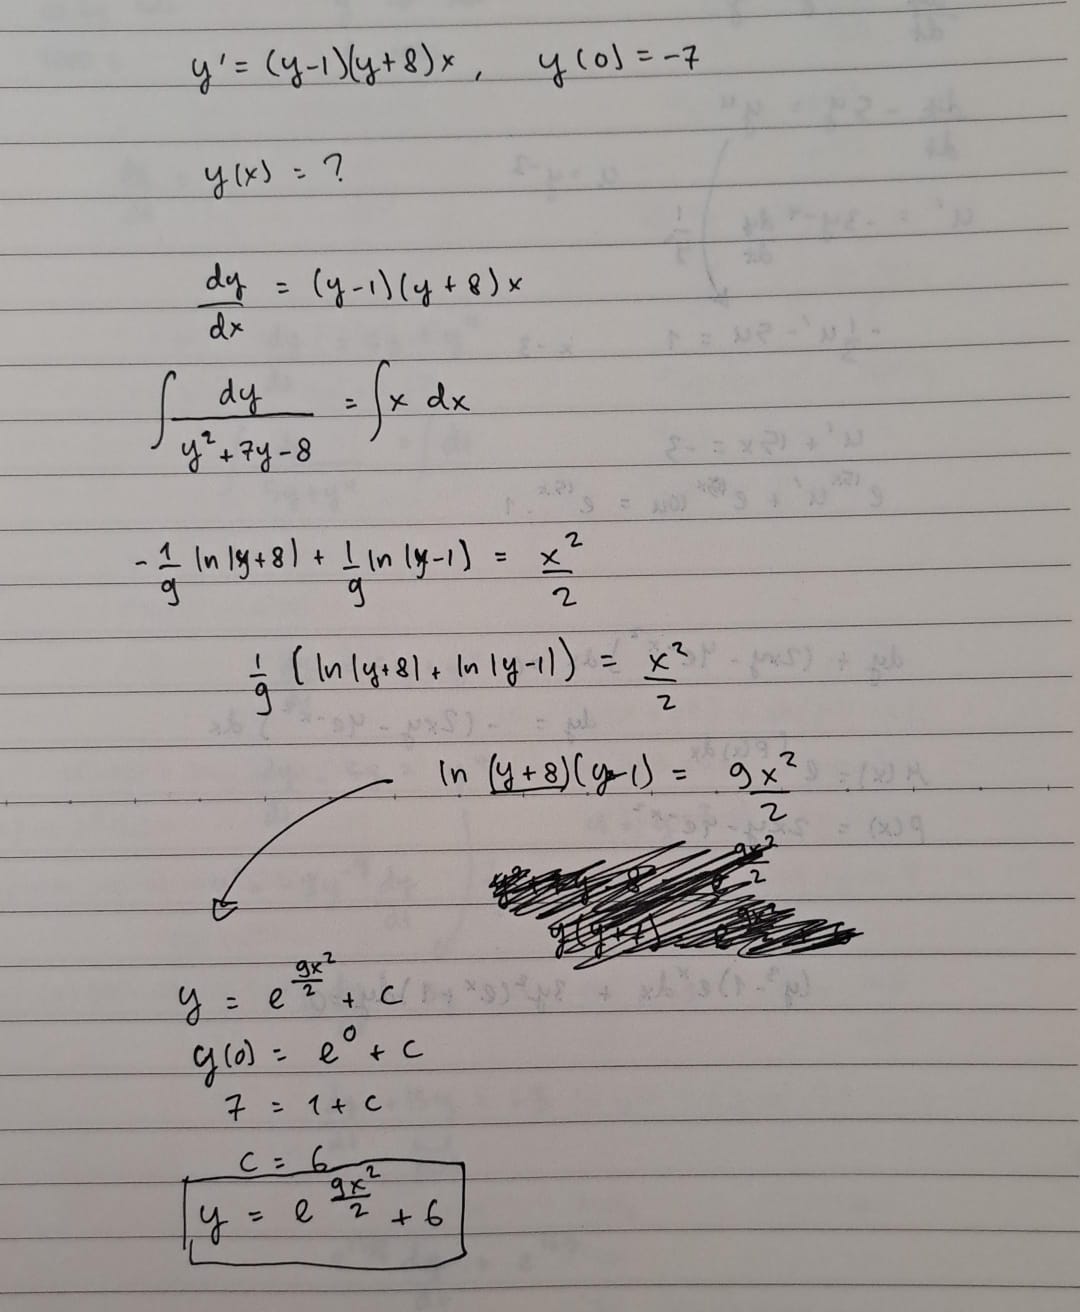 y' = (y-1)(y+8)x, y(0) = -7
y(x) = ?
dy/dx = (y-1)(y+8)x
∫ dy/(y²+7y-8) = ∫x dx
-1/9 ln|y+8| + 1/9 ln|y-1| = x²/2
1/9 (ln|y+8| + ln|y-1|) = x²/2
ln (y+8)(y-1) = 9x²/2
y = e^(9x²/2) + c
y(0) = e^0 + c
7 = 1 + c
c = 6
y = e^(9x²/2) + 6